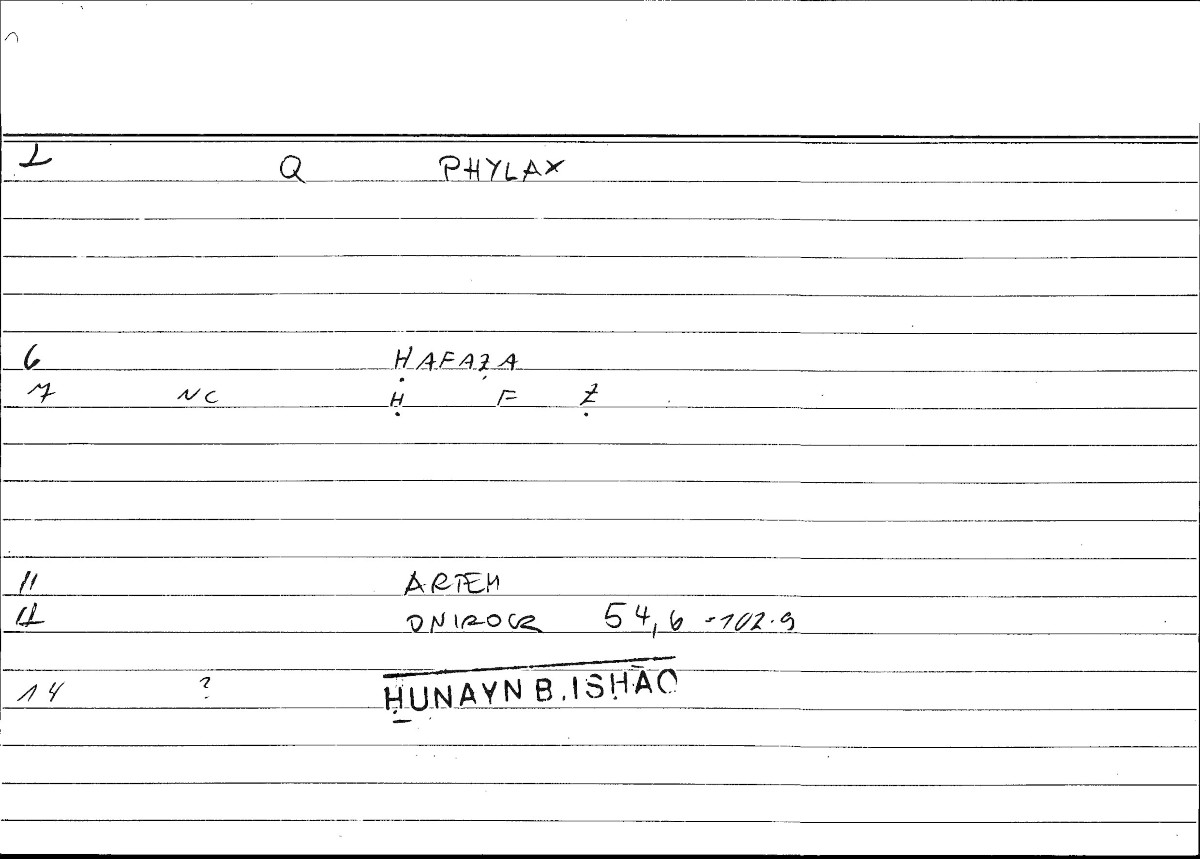 1 Q PHYLAX
6 ḤAFAẒA
7 NC Ḥ F Ẓ
11 ARTEM
12 ONIROCR 54,6 = 102.9
14 ? ḤUNAYN B. ISḤĀQ